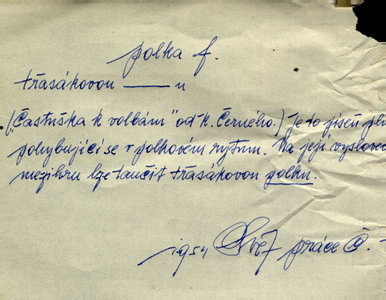 polka f.
třasákovou —— u
("Častuška k volbám" od k. Černého.) Je to píseň
pohybující se v polkovém rytmu. Na její
mezihru lze tančit třasákovou polku.
1954 práce č.